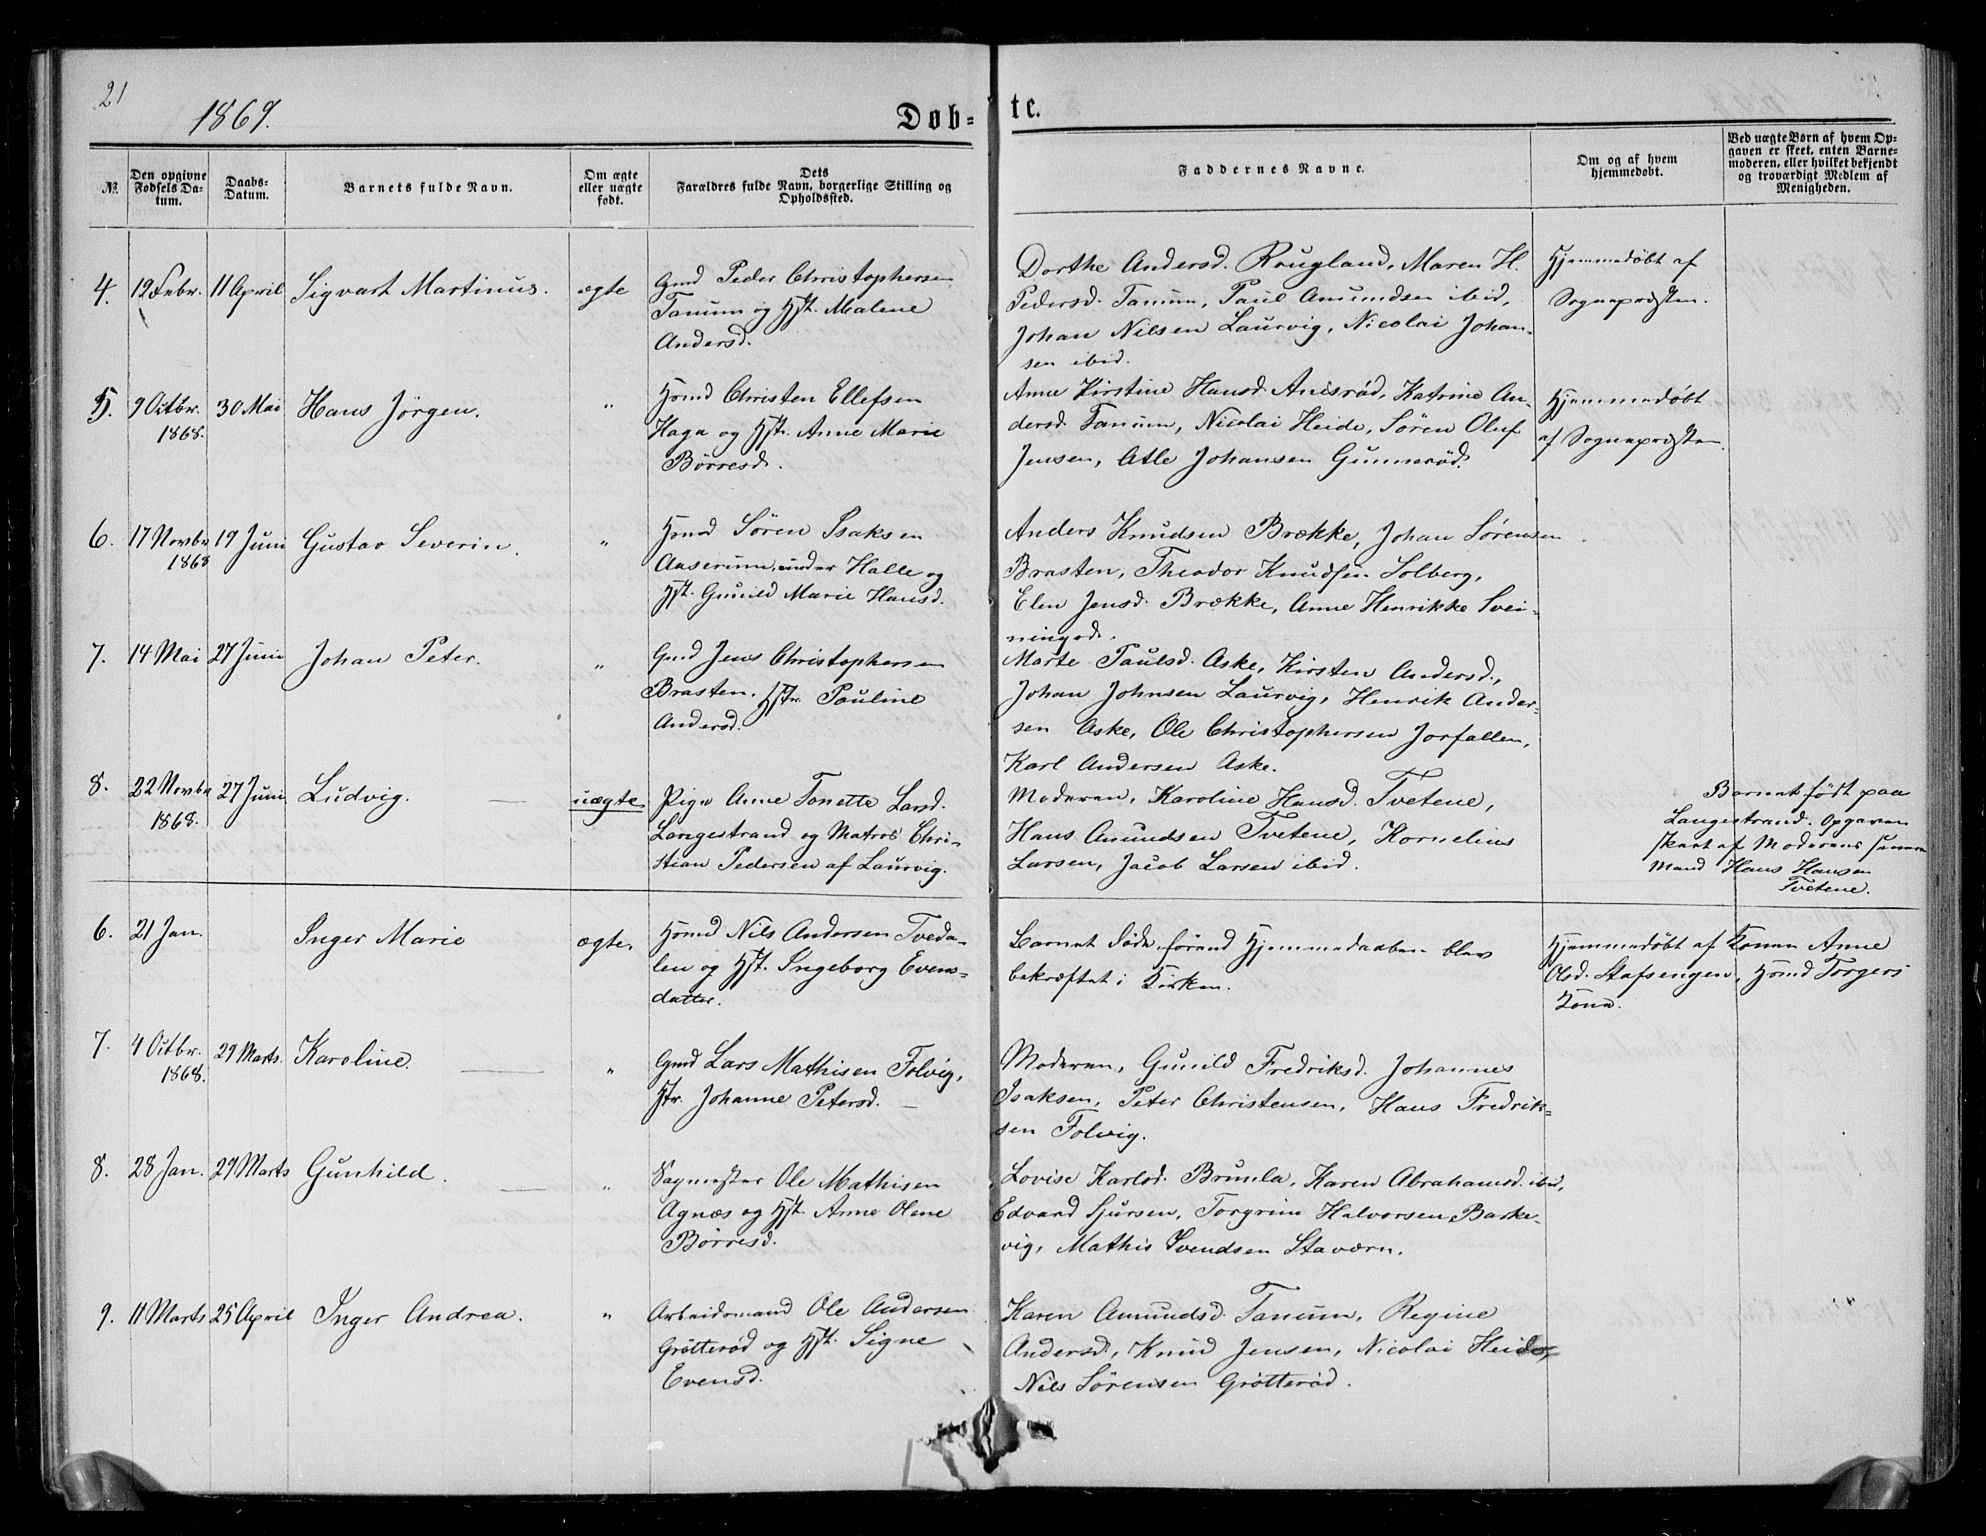 21
1869.
Døb-
te.
№
Den opgivne
Fødsels Da-
tum.
Daabs-
Datum.
Barnets fulde Navn.
Om ægte
eller uægte
født.
Dets
Forældres fulde Navn, borgerlige Stilling og
Opholdssted.
Faddernes Navne.
Om og af hvem
hjemmedøbt.
Ved uægte Børn af hvem Op-
gaven er skeet, enten Barne-
moderen, eller hvilket bekjendt
og troværdigt Medlem af
Menigheden.
4.
12 Febr.
11 April
Sigvart Martinus.
ægte
Gmd Peder Christophersen
Tanum og Hst. Malene
Andersd.
Dorthe Andersd. Rougland, Maren H.
Pedersd. Tanum, Paul Amundsen ibid,
Johan Nilsen Laurvig, Nicolai Johan-
sen ibid.
Hjemmedøbt af
Sognepræsten.
5.
9 Octbr.
1868.
30 Mai
Hans Jørgen.
"
Hsmd Christen Ellefsen
Haga og Hst. Anne Marie
Børresd.
Anne Kirstine Hansd. Anisrød, Katrine An-
dersd. Tanum, Nicolai Heide, Søren Oluf
Jensen, Atle Johansen Gunnerød.
Hjemmedøbt
af Sognepræsten.
6.
17 Novbr
1868
19 Juni
Gustav Severin.
"
Hsmd Søren Isaksen
Aaserum, under Halle og
Hst. Gunild Marie Hansd.
Anders Knudsen Brække, Johan Sørensen
Brasten, Theodor Knudsen Solberg,
Elen Jensd. Brække, Anne Henrikke Svei-
ningsd.
7.
14 Mai
27 Juni
Johan Peter.
"
Gmd Jens Christophersen
Brasten, Hstr. Pauline
Andersd.
Marte Paulsd. Aske, Kirsten Andersd.,
Johan Johnsen Laurvig, Henrik Ander-
sen Aske, Ole Christophersen Jorfallen,
Karl Andersen Aske.
8.
22 Novbr
1868.
27 Juni
Ludvig.
uægte
Pige Anne Tonette Larsd.
Langestrand og Matros Chri-
stian Pedersen af Laurvig.
Moderen, Karoline Hansd. Tvetene,
Hans Amundsen Tvetene, Kornelius
Larsen, Jacob Larsen ibid.
Barnet født paa
Langestrand. Opgaven
skeet af Moderens
Mand Hans Hansen
Tvetene.
6.
21 Jan.
Inger Marie
ægte.
Hsmd Nils Andersen Tveda-
len og Hst. Ingeborg Evens-
datter.
Barnet døde, førend Hjemmedaaben blev
bekræftet i Kirken.
Hjemmedøbt af Konen Anne
Olsd. Stafsengen, Hsmd Torgers
Kone.
7.
4 Octbr.
1868.
29 Marts.
Karoline.
"
Gmd Lars Mathisen Folvig,
Hstr. Johanne Petersd.
Moderen, Gunild Fredriksd. Johannes
Isaksen, Peter Christensen, Hans Fredrik-
sen Folvig.
8.
28 Jan.
29 Marts
Gunhild.
"
Sagmester Ole Mathisen
Agnæs og Hst. Anne Olene
Børresd.
Lovise Karlsd. Brunla, Karen Abrahamsd. ibid,
Edvard Sjursen, Torgrim Halvorsen Barke-
vig, Mathis Svendsen Staværn.
9.
11 Marts
25 April
Inger Andrea.
"
Arbeidsmand Ole Andersen
Grøtterød og Hst. Signe
Evensd.
Karen Amundsd. Tanum, Regine
Andersd, Knud Jensen, Nicolai Heide,
Nils Sørensen Grøtterød.